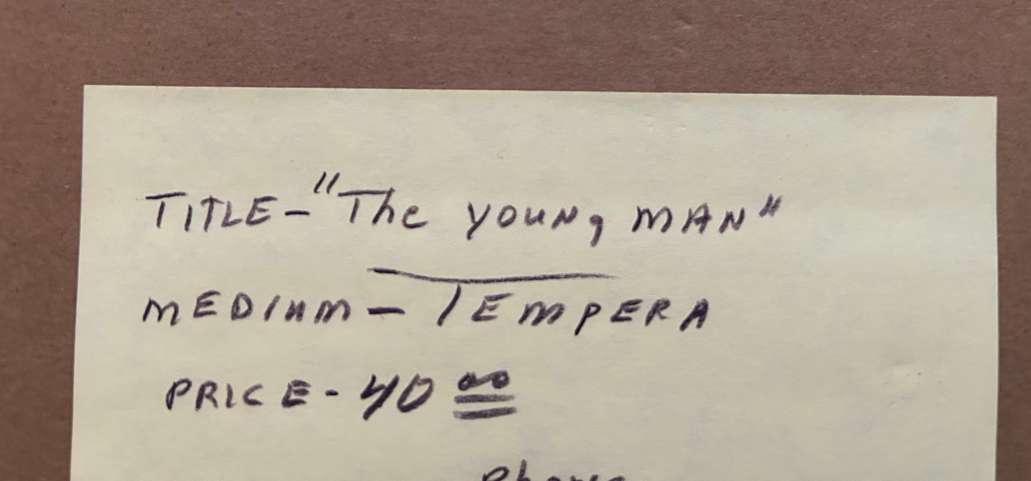 TITLE - "The YOUNg MAN"
MEDIUM - TEMPERA
PRICE - 40 00